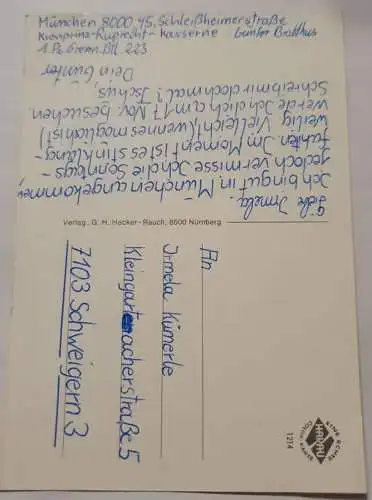 München 8000 45, Schleißheimerstraße
Kronprinz-Ruprecht-Kasserne Günter Bratthus
1 Pz Grenn. Btl. 223
Liebe Irmela.
Ich bin gut in München angekommen,
jedoch vermisse Ich die Sonntags-
fahrten. Im Moment ist es stinklang-
weilig. Vielleicht, (wenn es möglich ist)
werde Ich dich am 17 Nov. besuchen.
Schreib mir doch mal! Tschüs,
Dein Günter
Verlag: G. H. Hacker-Rauch, 8500 Nürnberg
An
Irmela Kümerle
Kleingartacherstraße 5
7103 Schweigern 3
EINE ECHTE
KRÜGER
1214